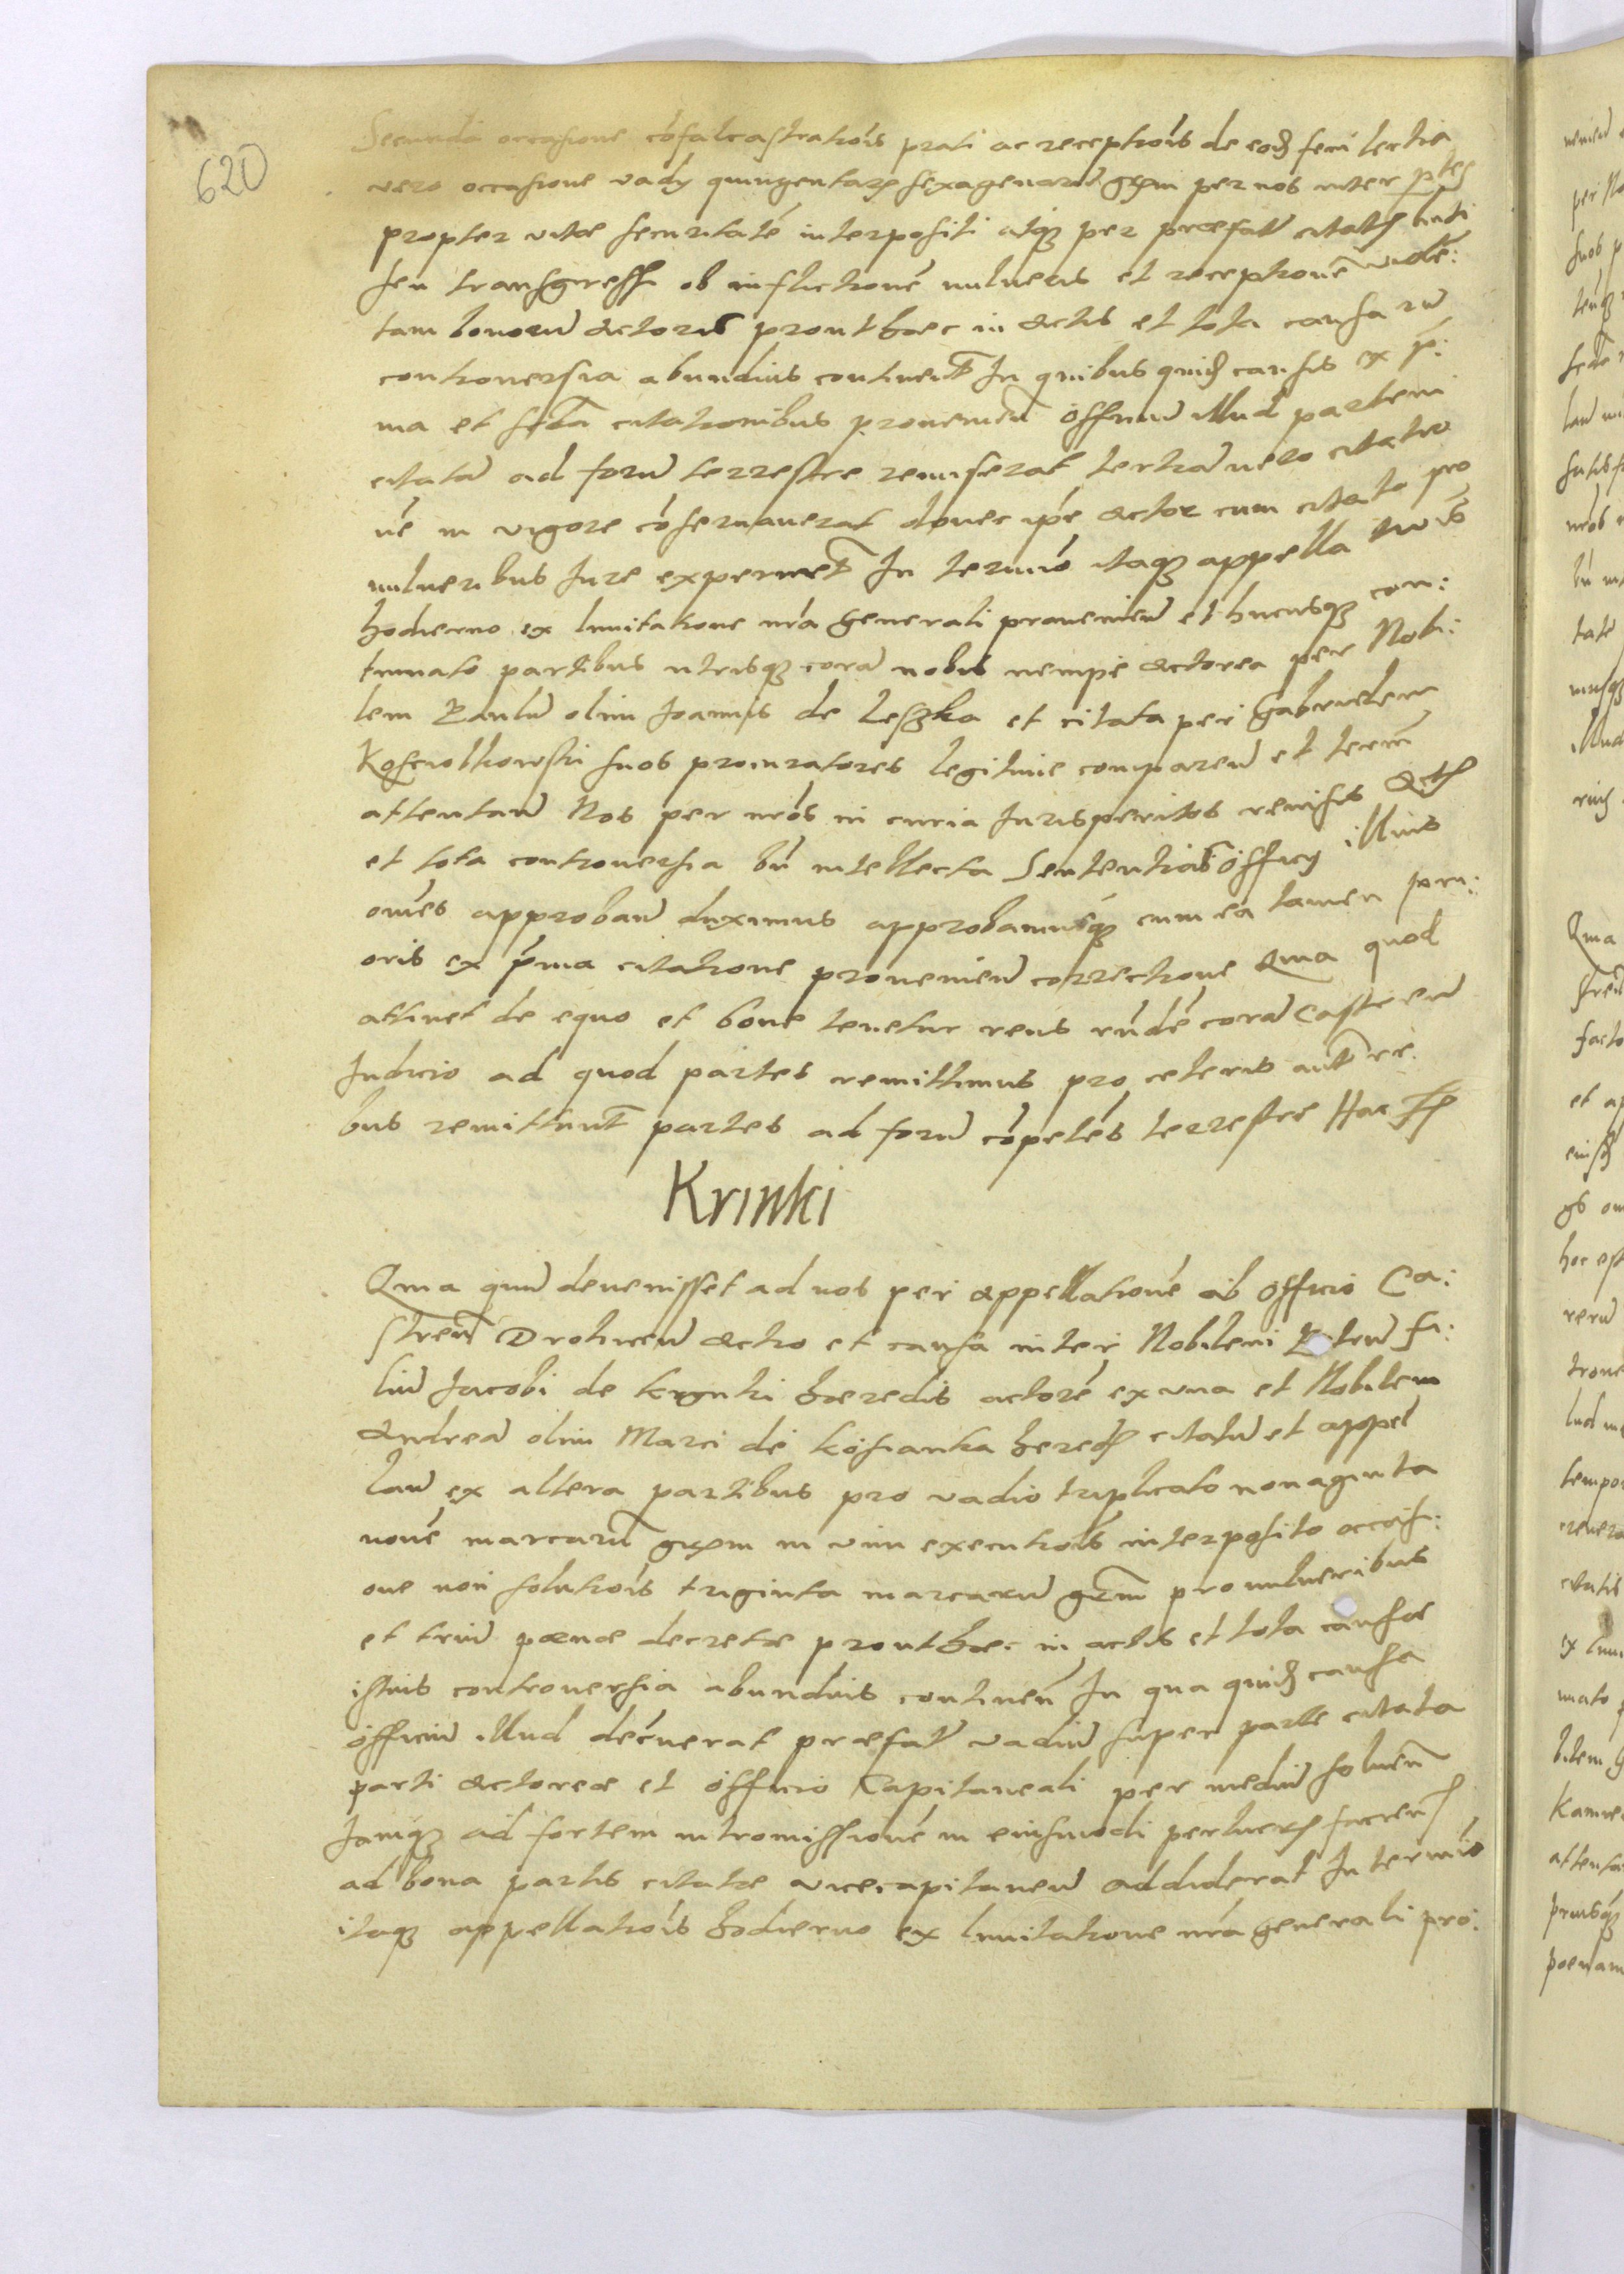 620
Secunda occasione cōfalcastratiōis prati ac receptiōis de eodē feni tertia
vero occasione vady quingentarū sexagenarū grm per nos inter ptes
propter vitae securitatē interpositi atq3 per praefat citatū
seu transgressi ob inflictionē vulneris et receptionē viole:
tam bonorū actoris prout haec in actis et tota causa rū
controuersia abundius continent In quibus quid causis ex p:
ma et secda citationibus prouenien officiū illud partem
citatā ad forū terrestre remiserat tertiā uero citatio
nē in vigore cōseruauerat donec ipe actor cum citato pro
vulneribus Jure experiret In termio itaq3 appellatiois
hodierno ex limitatione nrā generali prouenien et hucusq3 con:
tinuato partibus utrisq3 corā nobis nempe actorea per Nobi:
lem Paulū olim Joannis de Leszka et citata per Gabrielem
Kosciolkowski suos procuratores legitime comparen et term
attentan Nos per nrōs in curia Jurisperitos reuisis actis
et tota controuersia bn intellecta Sententias officy illius
omēs approban duximus approbamusq3 cum ea tamen pri:
oris ex pma citatione prouenien correctione Qma quod
attinet de equo et boue tenetur reus rndē corā Castren
Judicio ad quod partes remittimus pro ceteris aut re
bus remittunt partes ad forū cōpetēs terrestre Hac
Krinki
Qma quū deuenisset ad nos per appellationē ab officio Ca:
stren Drohicen actio et causa inter Nobilem Petrū fi:
liū Jacobi de Krynki haeredis actorē ex una et Nobilem
Andreā olim Marci de Kosianka hered citatū et appel
lan ex altera partibus pro vadio triplicato nonaginta
nouē marcarū grm in vim executiōis interposito occasi:
one non solutiōis triginta marcarū grm pro vulneribus
et triū poenae decretae prout haec in actis et tota causae
istius controuersia abundius continen In qua quid causa
officiū illud decreuerat praefat vadiū super parte citata
parti actoreae et officio Capitaneali per mediū soluen
Jamq3 ad sortem intromissionē in eiusmodi facien
ad bona partis citatae vicecapitaneū addiderat In termio
itaq3 appellatiōis hodierno ex limitatione nrā generali pro: